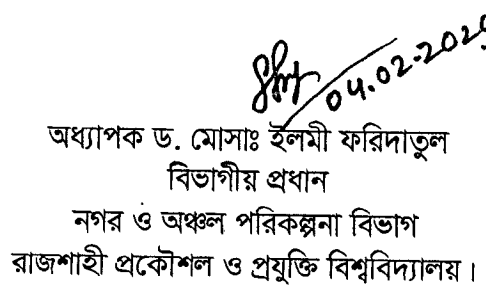 04.02.202
অধ্যাপক ড. মোসাঃ ইলমী ফরিদাতুল
বিভাগীয় প্রধান
নগর ও অঞ্চল পরিকল্পনা বিভাগ
রাজশাহী প্রকৌশল ও প্রযুক্তি বিশ্ববিদ্যালয়।